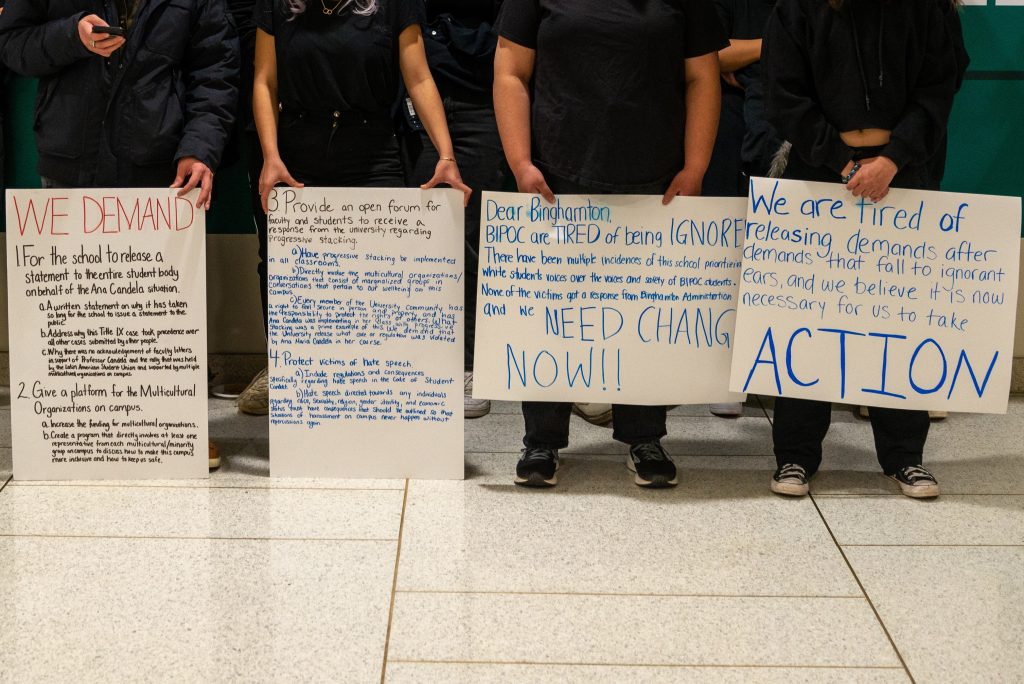 WE DEMAND
1 For the school to release a
statement to the entire student body
on behalf of the Ana Candela situation.
A. A written statement on why it has taken
so long for the school to issue a statement to the
public.
b. Address why this Title IX case took precedence over
all other cases submitted by other people.
c. Why there was no acknowledgement of faculty letters
in support of Professor Candela and the rally that was held
by the Latin American Student Union and supported by multiple
multicultural organizations on campus.
2. Give a platform for the Multicultural
Organizations on campus.
a. Increase the funding for multicultural organizations.
b. Create a program that directly involves at least one
representative from each multicultural/minority
group on campus to discuss how to make this campus
more inclusive and how to keep us safe.
3 Provide an open forum for
faculty and students to receive a
response from the university regarding
Progressive stacking.
a) Have progressive stacking be implemented
in all classrooms.
b) Directly involve the multicultural organizations/
organizations that consist of marginalized groups in
conversations that pertain to our wellbeing on this
campus.
c) Every member of the University Community has
a right to feel secure in and property and has
the responsibility to protect the rights of others. What
Ana Candela was implementing in her class with progressive
stacking was a prime example of this. We demand that
the University release what law or regulation was violated
by Ana Maria Candela in her course.
4. Protect victims of hate speech.
a) Include regulations and consequences
specifically regarding hate speech in the Code of Student
Conduct.
b) Hate speech directed towards any individuals
regarding race, sexuality, religion, gender identity, and economic
status must have consequences that should be outlined so that
situations of harassment on campus never happens without
repercussions again.
Dear Binghamton,
BIPOC are TIRED of being IGNORE
There have been multiple incidences of this school prioritizin
white students voices over the voices and safety of BIPOC students.
None of the victims got a response from Binghamton Administration
and we NEED CHANG
NOW!!
We are tired of
releasing demands after
demands that fall to ignorant
ears, and we believe it is now
necessary for us to take
ACTION